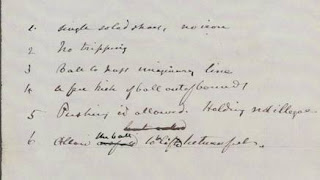 1 single soled shoes, no iron
2 No tripping
3 Ball to pass imaginary line
4 A free kick if ball out of bounds
5 Pushing is allowed. Holding not illegal
6 Allow the ball to be lifted